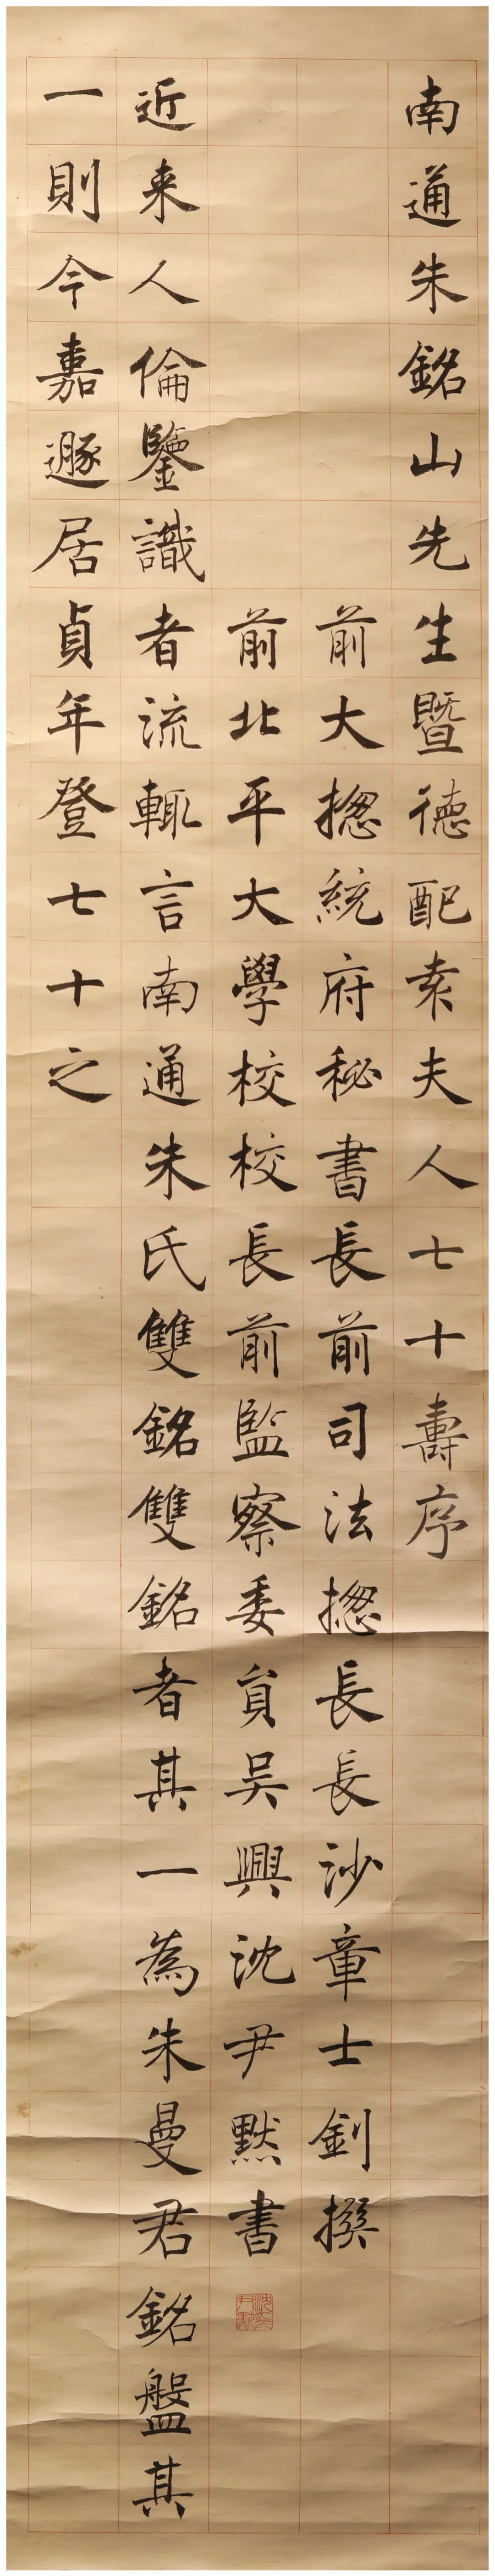 南通朱銘山先生暨德配索夫人七十壽序
前大揔統府秘書長前司法揔長長沙章士釗撰
前北平大學校校長前監察委員吴興沈尹默書
近来人倫鑒識者流輒言南通朱氏雙銘雙銘者其一為朱曼君銘盤其
一則今嘉遯居貞年登七十之